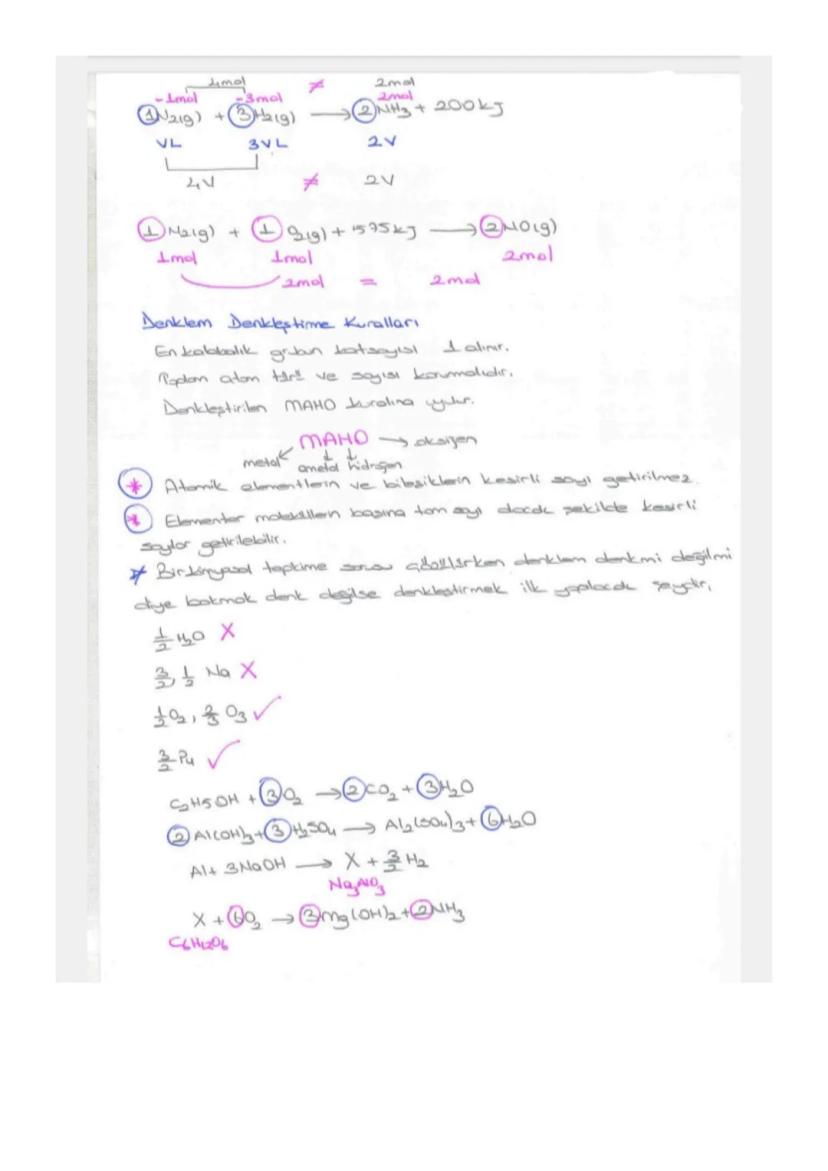 4mol ≠ 2mol
-1mol -3mol 2mol
1 N2(g) + 3 H2(g) → 2 NH3 + 200kJ
VL 3VL 2V
4V ≠ 2V
1 N2(g) + 1 O2(g) + 1575kJ → 2 NO(g)
1mol 1mol 2mol
2mol = 2mol
Denklem Denkleştirme Kuralları
En kalabalık grubun katsayısı 1 alınır.
Toplam atom türü ve sayısı korunmalıdır.
Denkleştirilen MAHO kuralına uyulur.
MAHO → oksijen
metal ametal hidrojen
* Atomik elementlerin ve bileşiklerin kesirli sayı getirilmez.
* Elementer moleküllerin başına tam sayı olacak şekilde kesirli
sayılar getirilebilir.
* Bir kimyasal tepkime sorusu çözülürken denklem denkmi değilmi
diye bakmak denk değilse denkleştirmek ilk yapılacak şeydir.
1/2 H2O X
3/2, 1/2 Na X
1/2 O2, 2/3 O3 ✓
3/2 P4 ✓
C2H5OH + 3 O2 → 2 CO2 + 3 H2O
2 Al(OH)3 + 3 H2SO4 → Al2(SO4)3 + 6 H2O
Al + 3NaOH → X + 3/2 H2
Na3AlO3
X + 6 O2 → 3 Mg(OH)2 + 2 NH3
C6H12O6